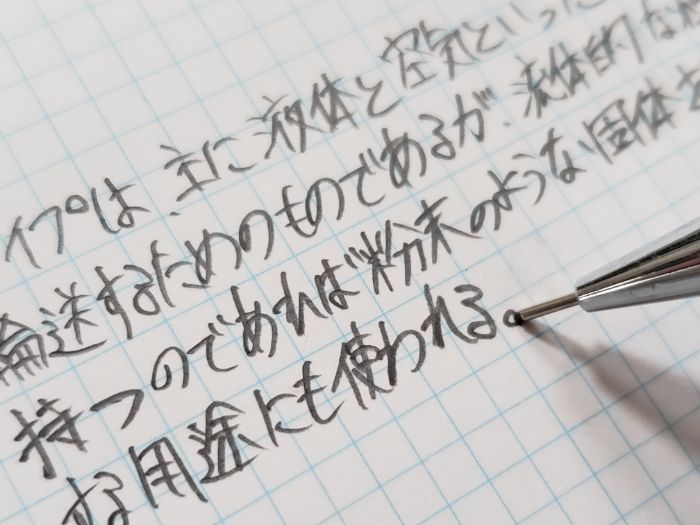 イプは、主に液体と空気といった
輸送するためのものであるが、流体的な
持つのであれば粉末のような固体を
する用途にも使われる。